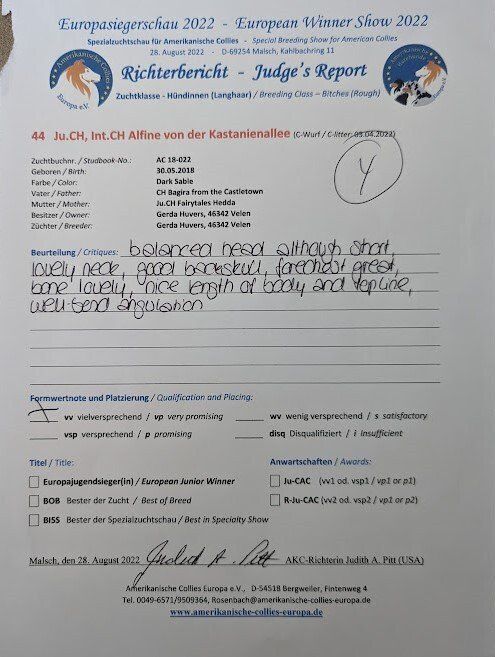 Europasiegerschau 2022 - European Winner Show 2022
Spezialzuchtschau für Amerikanische Collies - Special Breeding Show for American Collies
28. August 2022 - D-69254 Malsch, Kahlbachring 11
Richterbericht - Judge's Report
Zuchtklasse - Hündinnen (Langhaar) / Breeding Class – Bitches (Rough)
Amerikanische Collies
Europa e.V.
44 Ju.CH, Int.CH Alfine von der Kastanienallee (C-Wurf / C-litter: 03.04.2022)
4
Zuchtbuchnr. / Studbook-No.: AC 18-022
Geboren / Birth: 30.05.2018
Farbe / Color: Dark Sable
Vater / Father: CH Bagira from the Castletown
Mutter / Mother: Ju.CH Fairytales Hedda
Besitzer / Owner: Gerda Huvers, 46342 Velen
Züchter / Breeder: Gerda Huvers, 46342 Velen
Beurteilung / Critiques: balanced head although short
lovely neck, good backskull, forechest great,
bone lovely, nice length of body and topline,
well-bend angulation
Formwertnote und Platzierung / Qualification and Placing:
vv vielversprechend / vp very promising
wv wenig versprechend / s satisfactory
vsp versprechend / p promising
disq Disqualifiziert / i Insufficient
Titel / Title:
Anwartschaften / Awards:
Europajugendsieger(in) / European Junior Winner
Ju-CAC (vv1 od. vsp1 / vp1 or p1)
BOB Bester der Zucht / Best of Breed
R-Ju-CAC (vv2 od. vsp2 / vp1 or p2)
BISS Bester der Spezialzuchtschau / Best in Specialty Show
Malsch, den 28. August 2022 Judith A. Pitt AKC-Richterin Judith A. Pitt (USA)
Amerikanische Collies Europa e.V., D-54518 Bergweiler, Fintenweg 4
Tel. 0049-6571/9509364, Rosenbach@amerikanische-collies-europa.de
www.amerikanische-collies-europa.de